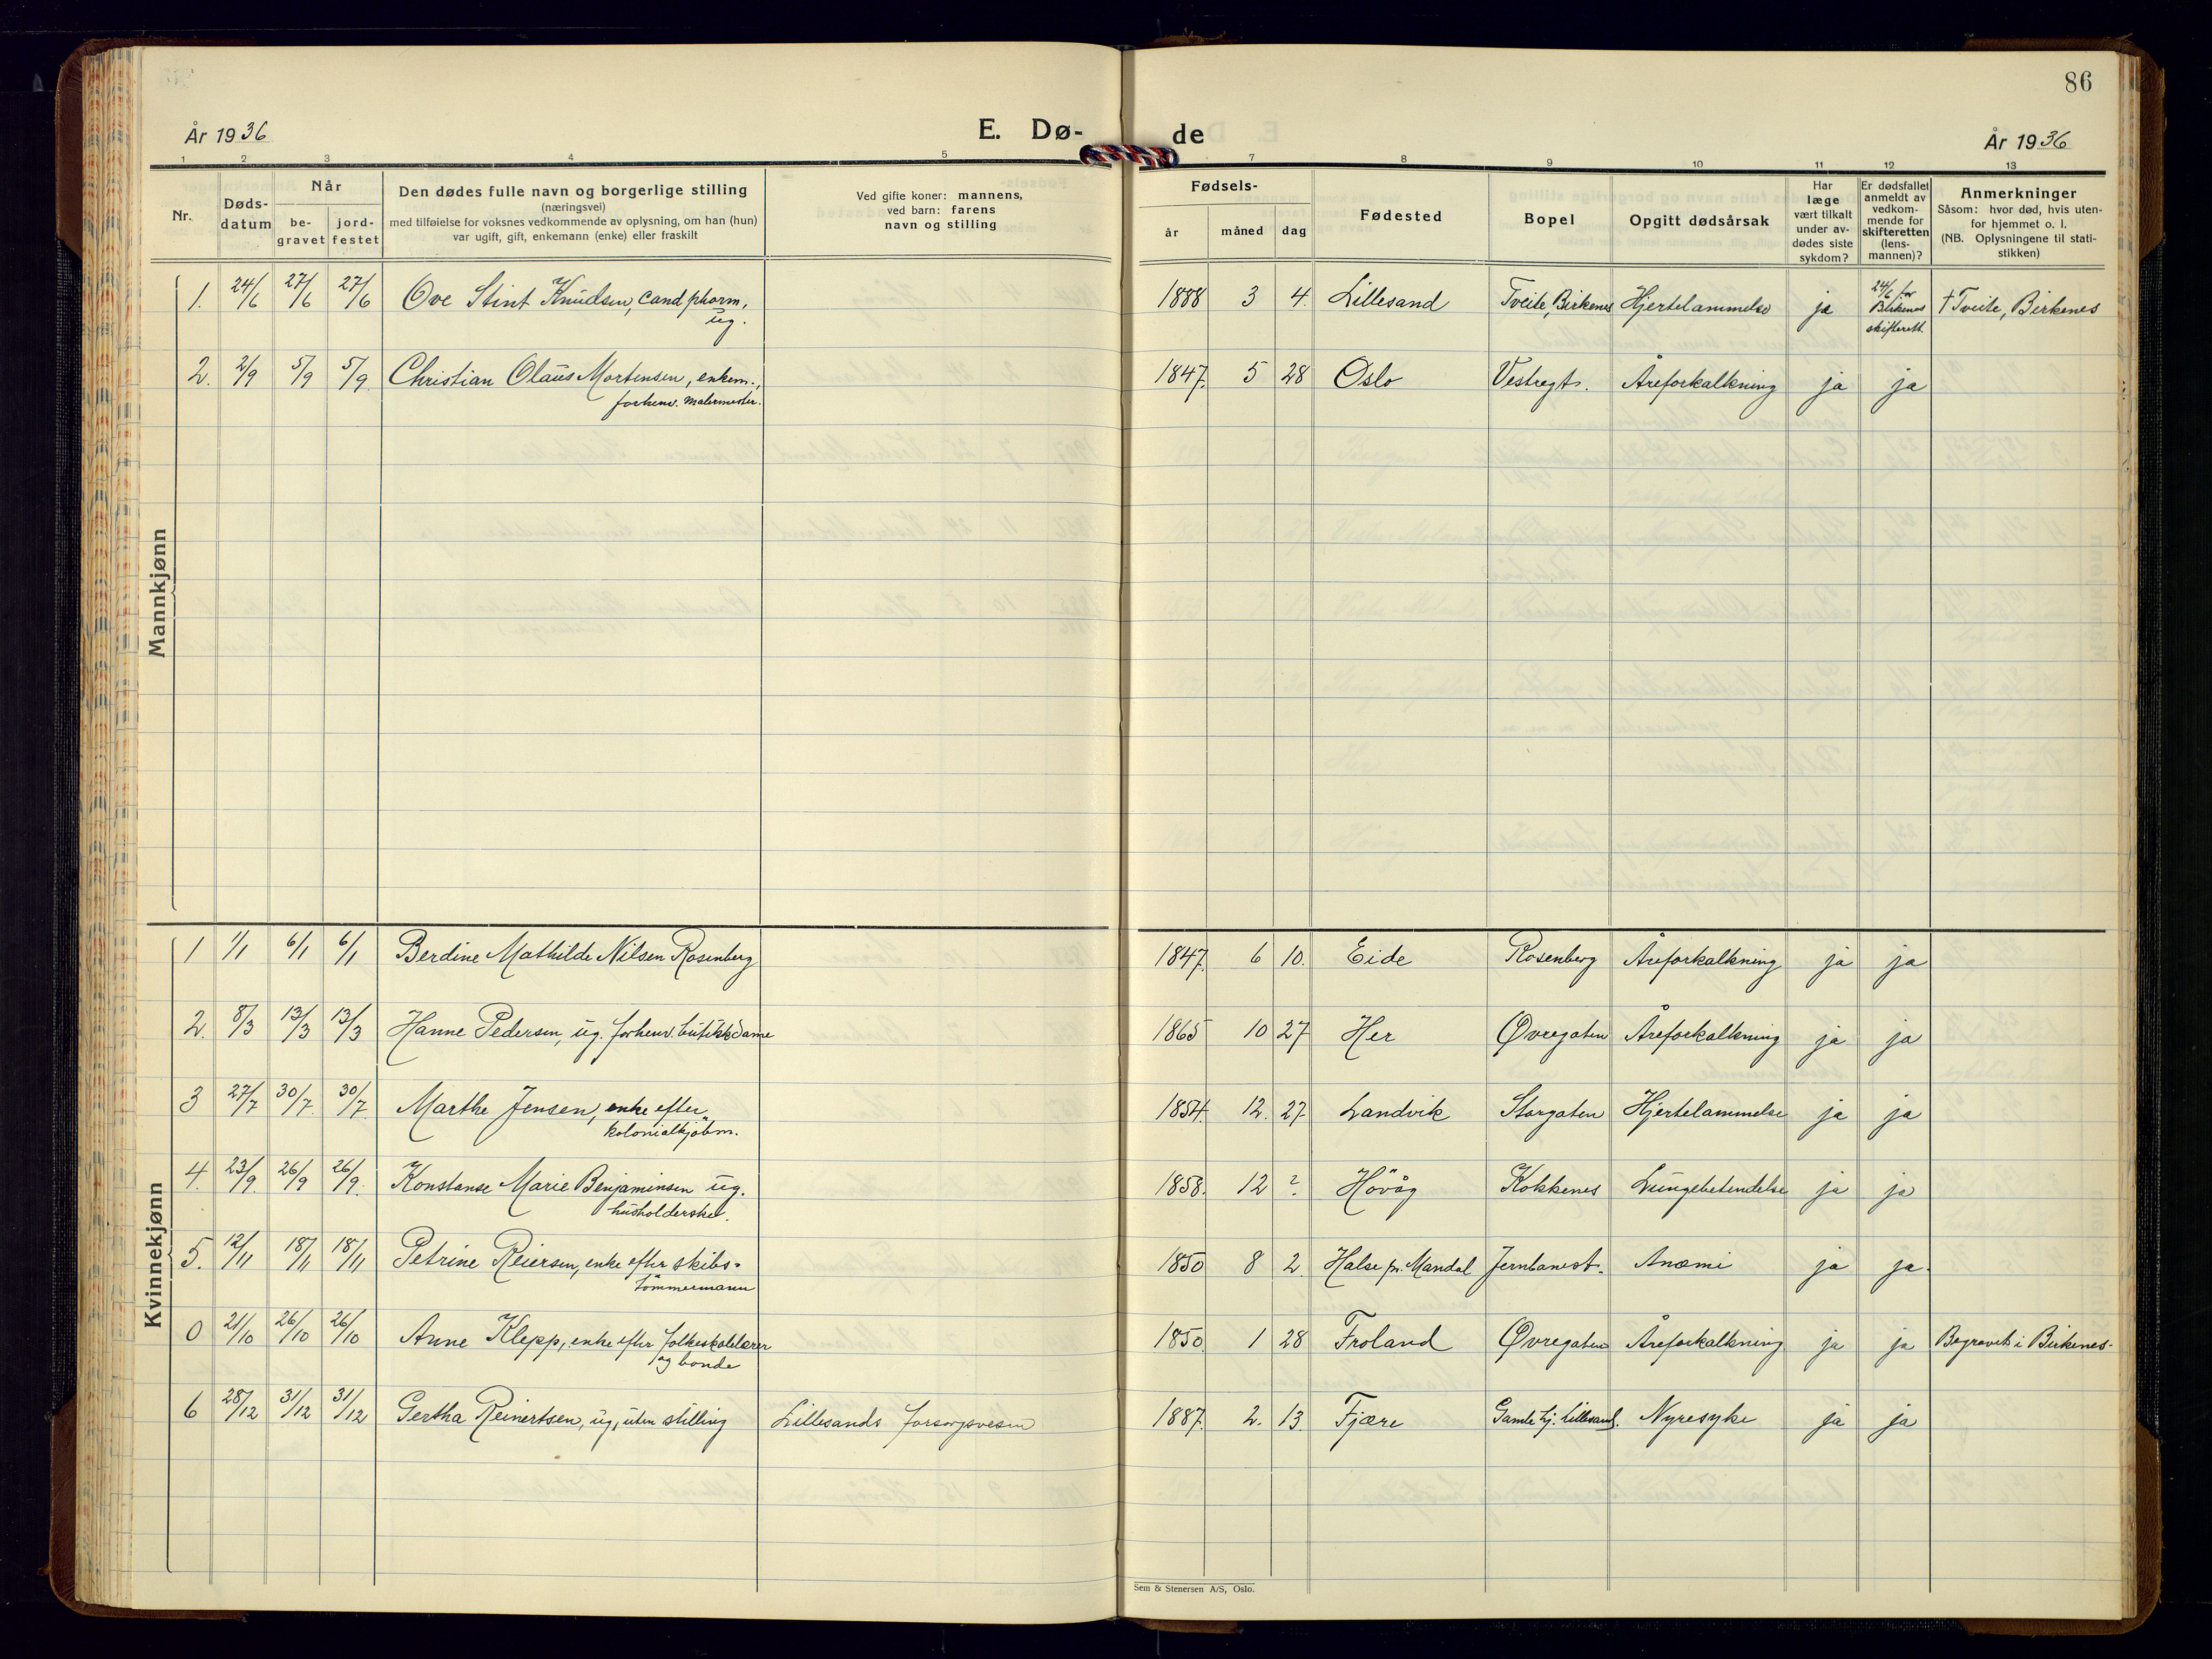 86
År 1936
E. Dø-
de
År 1936
1 2 3 4 5 7 8 9 10 11 12 13
Nr.
Døds-
datum
Når
be-
gravet
jord-
festet
Den dødes fulle navn og borgerlige stilling
(næringsvei)
med tilføielse for voksnes vedkommende av oplysning, om han (hun)
var ugift, gift, enkemann (enke) eller fraskilt
Ved gifte koner: mannens,
ved barn: farens
navn og stilling
Fødsels-
år måned dag
Fødested
Bopel
Opgitt dødsårsak
Har
læge
vært tilkalt
under av-
dødes siste
sykdom?
Er dødsfallet
anmeldt av
vedkom-
mende for
skifteretten
(lens-
mannen)?
Anmerkninger
Såsom: hvor død, hvis uten-
for hjemmet o. l.
(NB. Oplysningene til stati-
stikken)
Mannkjønn
1. 24/6 27/6 27/6 Ove Stint Knudsen, cand pharm, 1888 3 4. Lillesand Tveite, Birkenes Hjertelammelse ja 24/6 for † Tveite, Birkenes
ug. Birkenes
skifterett.
2. 2/9 5/9 5/9. Christian Olaus Mortensen, enkem., 1847. 5 28 Oslo Vestregt. Åreforkalkning ja ja
forhenv. malermester.
Kvinnekjønn
1 1/1 6/1 6/1 Berdine Mathilde Nilsen Rosenberg 1847. 6 10. Eide Rosenberg Åreforkalkning ja ja
2. 8/3 13/3 13/3 Hanne Pedersen, ug. forhenv. butikkdame 1865 10 27 Her Øvregaten Åreforkalkning ja ja
3 27/7 30/7. 30/7. Marthe Jensen, enke efter 1854. 12. 27 Landvik Storgaten Hjertelammelse ja ja
kolonialkjøbm.
4. 23/9. 26/9 26/9. Konstanse Marie Benjaminsen ug. 1858. 12 ?. Høvåg Kokkenes Lungebetendelse ja ja
husholderske.
5. 12/11 18/11 18/11 Petrine Reiersen, enke efter skibs- 1850 8 2 Halse pr. Mandal Jernbanest. Anæmi ja ja.
tømmermann
0 21/10 26/10 26/10 Anne Klepp, enke efter folkeskolelærer 1850. 1 28 Froland Øvregaten Åreforkalkning ja ja Begravet i Birkenes.
og bonde
6 28/12 31/12 31/12 Gertha Reinertsen, ug, uten stilling Lillesands forsorgsvesen 1887. 2. 13. Fjære Gamle hj. Lillesand. Nyresyke ja ja
Sem & Stenersen A/S, Oslo.